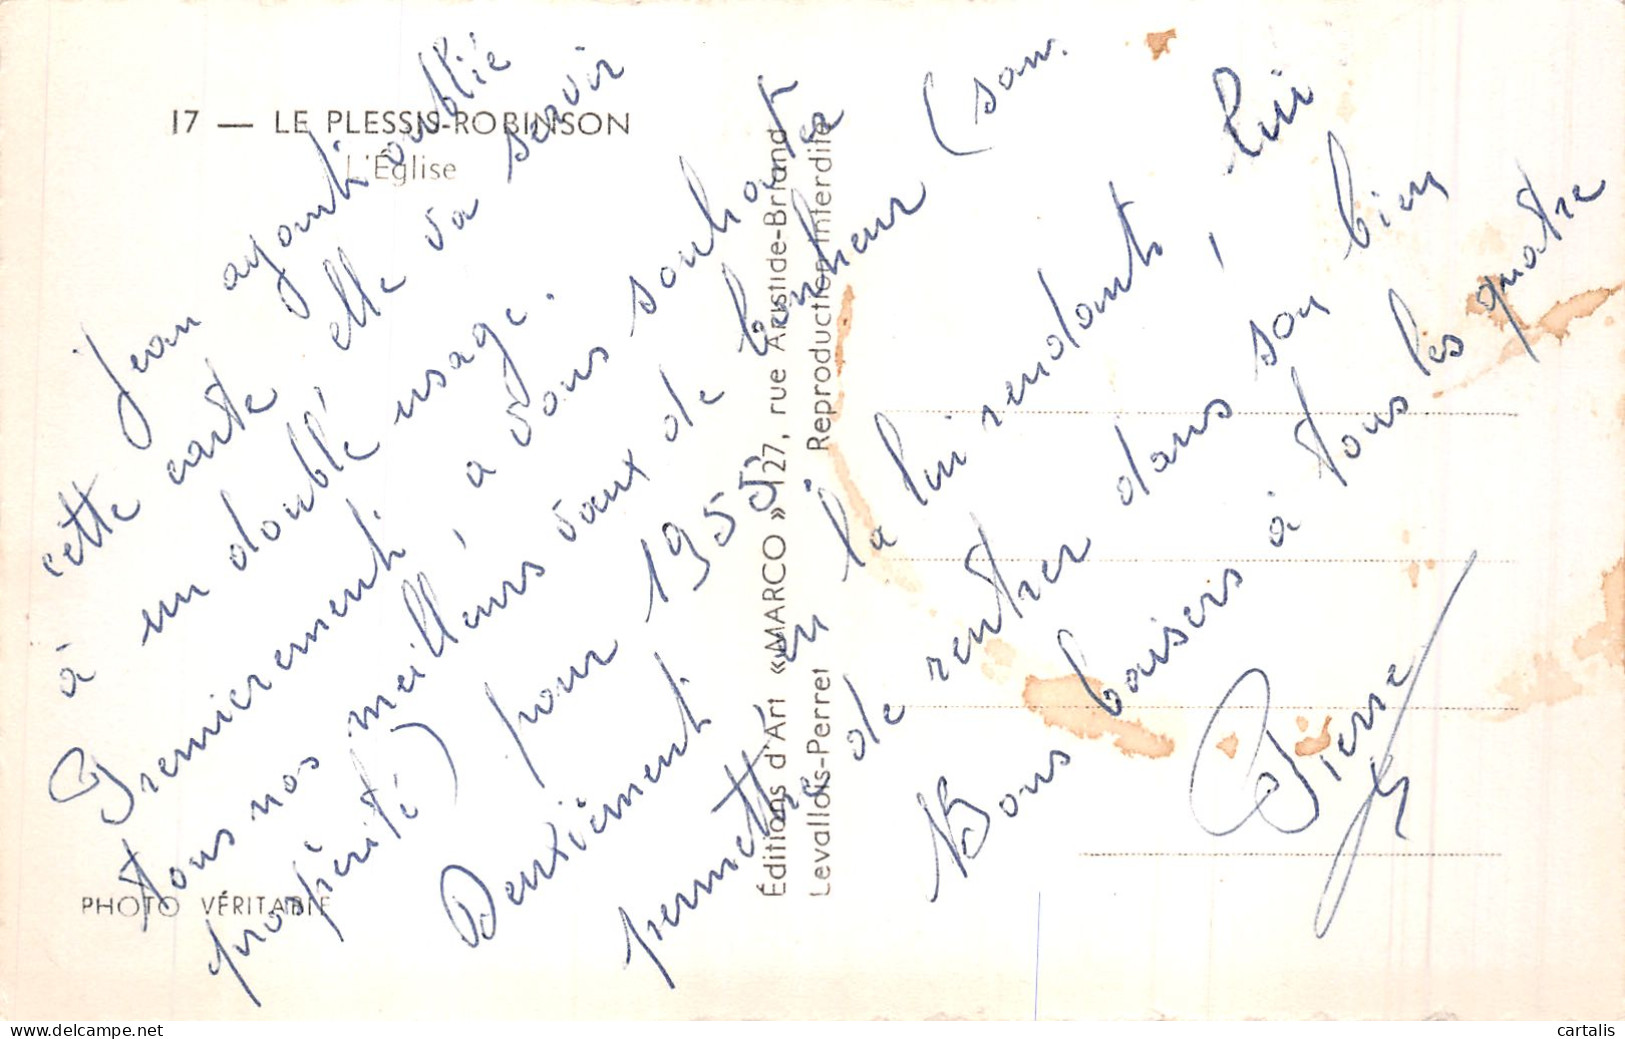 17 — LE PLESSIS-ROBINSON
L'Église
Jean ayant oublié
cette carte, elle va servir
à un double usage.
Premièrement, à vous souhaiter
tous nos meilleurs vœux de bonheur (
prospérité) pour 1955
Deuxièmement, en la lui rendant, lui
permettre de rentrer dans son bien
Bons baisers à tous les quatre
Pierre
Éditions d'Art «MARCO» 127, rue Aristide-Briand
Levallois-Perret • Reproduction Interdite
PHOTO VÉRITABLE
cartalis
delcampe.net